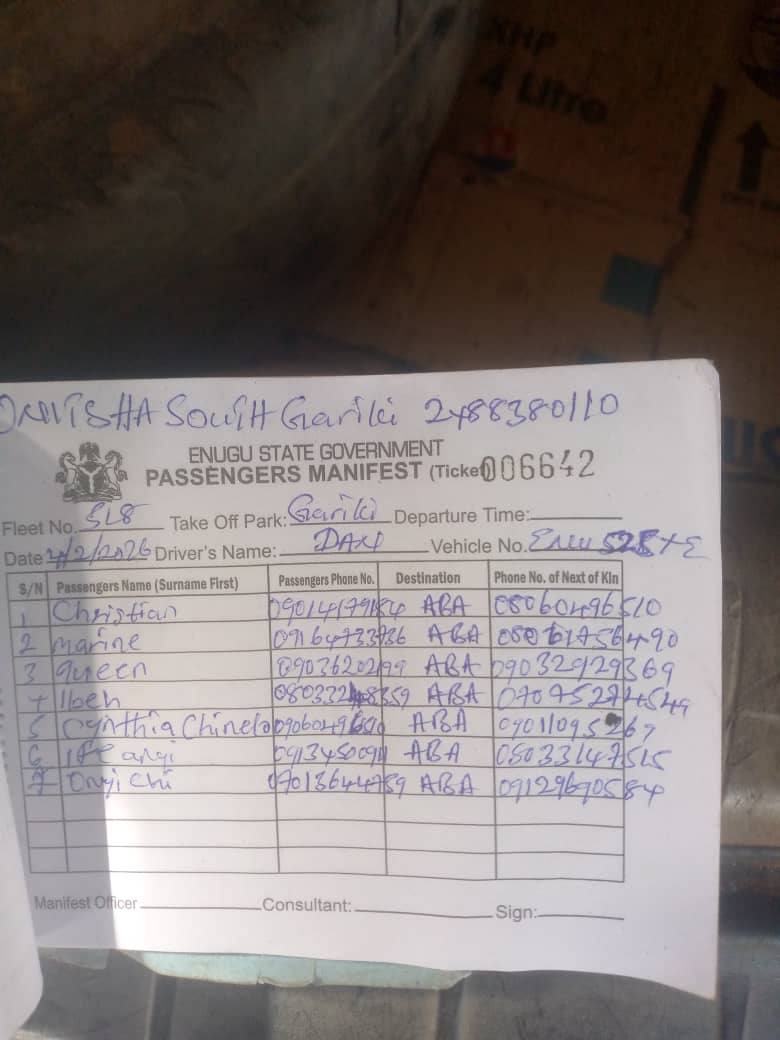 XHP
4 Litre
ONITSHA South Gariki 2488380110
ENUGU STATE GOVERNMENT
PASSENGERS MANIFEST (Ticket 006642
Fleet No. SL8 Take Off Park: Gariki Departure Time:
Date 4/2/2026 Driver's Name: DAN Vehicle No. Enu 528 XE
S/N Passengers Name (Surname First) Passengers Phone No. Destination Phone No. of Next of Kin
1 Christian 09014179184 ABA 08060496510
2 Marine 09164733736 ABA
3 Queen 09036202199 ABA 09032929369
4 Ibeh ABA 07075274549
5 Cynthia Chinelo ABA
6 Ifeanyi ABA 08033147515
7 Onyi Chi 07013644759 ABA 09129690584
Manifest Officer Consultant: Sign: